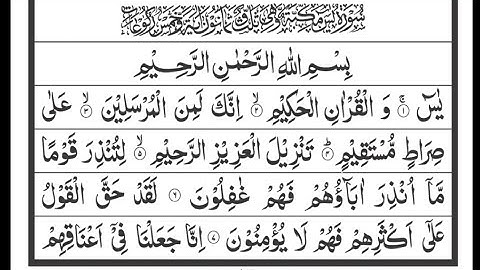 سُوْرَةُ يٰسٓ مَكِّيَّةٌ وَّهِيَ ثَلٰثٌ وَّثَمَانُوْنَ اٰيَةً وَّخَمْسُ رُكُوْعَاتٍ
بِسْمِ اللهِ الرَّحْمٰنِ الرَّحِيْمِ
يٰسٓ ۚ ﴿۱﴾ وَ الْقُرْاٰنِ الْحَكِيْمِ ۙ ﴿۲﴾ اِنَّكَ لَمِنَ الْمُرْسَلِيْنَ ۙ ﴿۳﴾ عَلٰى
صِرَاطٍ مُّسْتَقِيْمٍ ؕ ﴿۴﴾ تَنْزِيْلَ الْعَزِيْزِ الرَّحِيْمِ ۙ ﴿۵﴾ لِتُنْذِرَ قَوْمًا
مَّاۤ اُنْذِرَ اٰبَآؤُهُمْ فَهُمْ غٰفِلُوْنَ ﴿۶﴾ لَقَدْ حَقَّ الْقَوْلُ
عَلٰۤى اَكْثَرِهِمْ فَهُمْ لَا يُؤْمِنُوْنَ ﴿۷﴾ اِنَّا جَعَلْنَا فِيْۤ اَعْنَاقِهِمْ